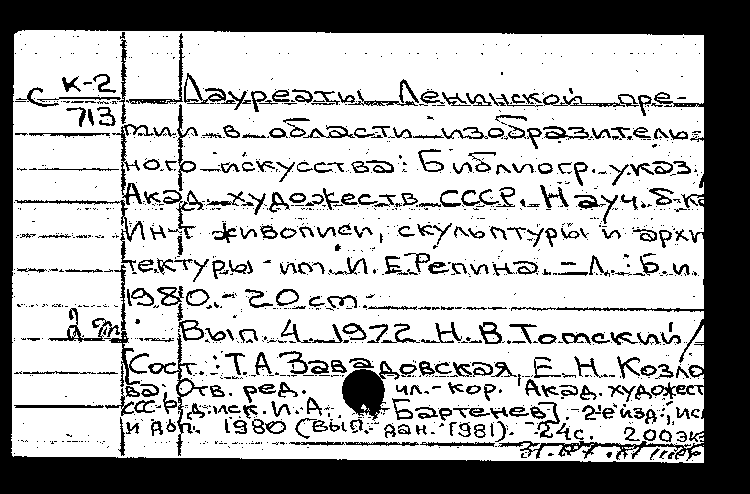 С К-2/713 Лауреаты Ленинской пре-
мии в области изобразитель-
ного искусства: Библиогр. указ. /
Акад. художеств СССР. Науч. б-ка
Ин-т живописи, скульптуры и архи
тектуры им. И. Е. Репина. - Л. : Б.и.
1980. - 20 см. -
2 эт. Вып. 4 1972 Н. В. Томский /
[Сост.: Т. А. Завадовская, Е. Н. Козло
ва; Отв. ред. чл.-кор. Акад. художест
СССР, д-р иск. И. А. Бартенев]. - 2-е изд., ис
и доп. 1980 (вып. дан. 1981). - 24 с. 200 эк